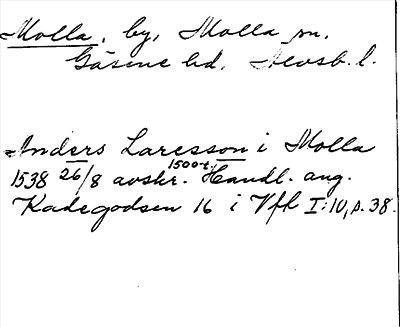 Molla, by, Molla sn,
Gäsene hd, Älvsb. l.
Anders Laresson i Molla
1538 26/8 avskr. 1500-t. Handl. ang.
Kadegodsen 16 i Vfh I:10, p. 38.